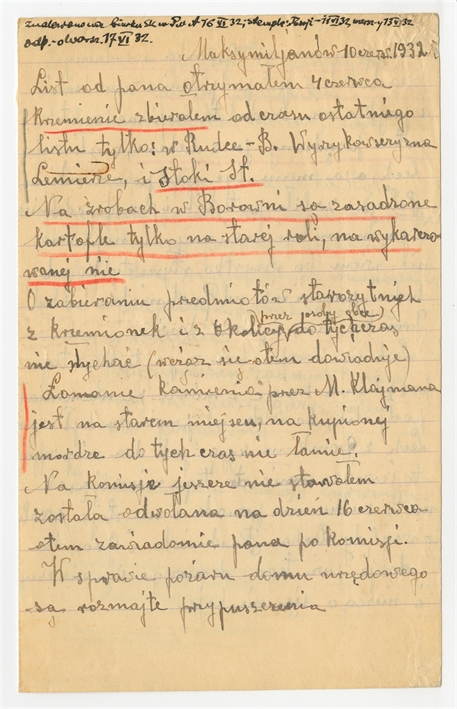 znalezione w biurku w P.M.A 16 VI 32, stemple: Tarsji - 11 VI 32, warsz-y 13 VI 32
odp. - dwom. 17 VI 32.
Maksymiljanów 10 czerw. 1932.
List od pana otrzymałem 4 czerwca
krzemienie zbierałem od czasu ostatniego
listu tylko: w Rudce-B. Wyrzykowszczyzna
Lemierze, i Stoki St.
Na zrobach w Borowni są zasadzone
kartofle tylko na starej roli, na wykarczo
wanej nie
O zabieraniu predmiotów starozytnych
(przez osoby obce)
z krzemionek i z okolicy do tych czas
nie słychać (wciąz się otem dowiaduje)
Łamanie kamienia przez M. Klajmana
jest na starem miejscu, na kupionej
mordze do tych czas nie łamie.
Na komisje jeszcze nie stawałem
została odwołana na dzień 16 czerwca
otem zawiadomie pana po komisji.
W sprawie pożaru domu urzędowego
są rozmajte przypuszczenia